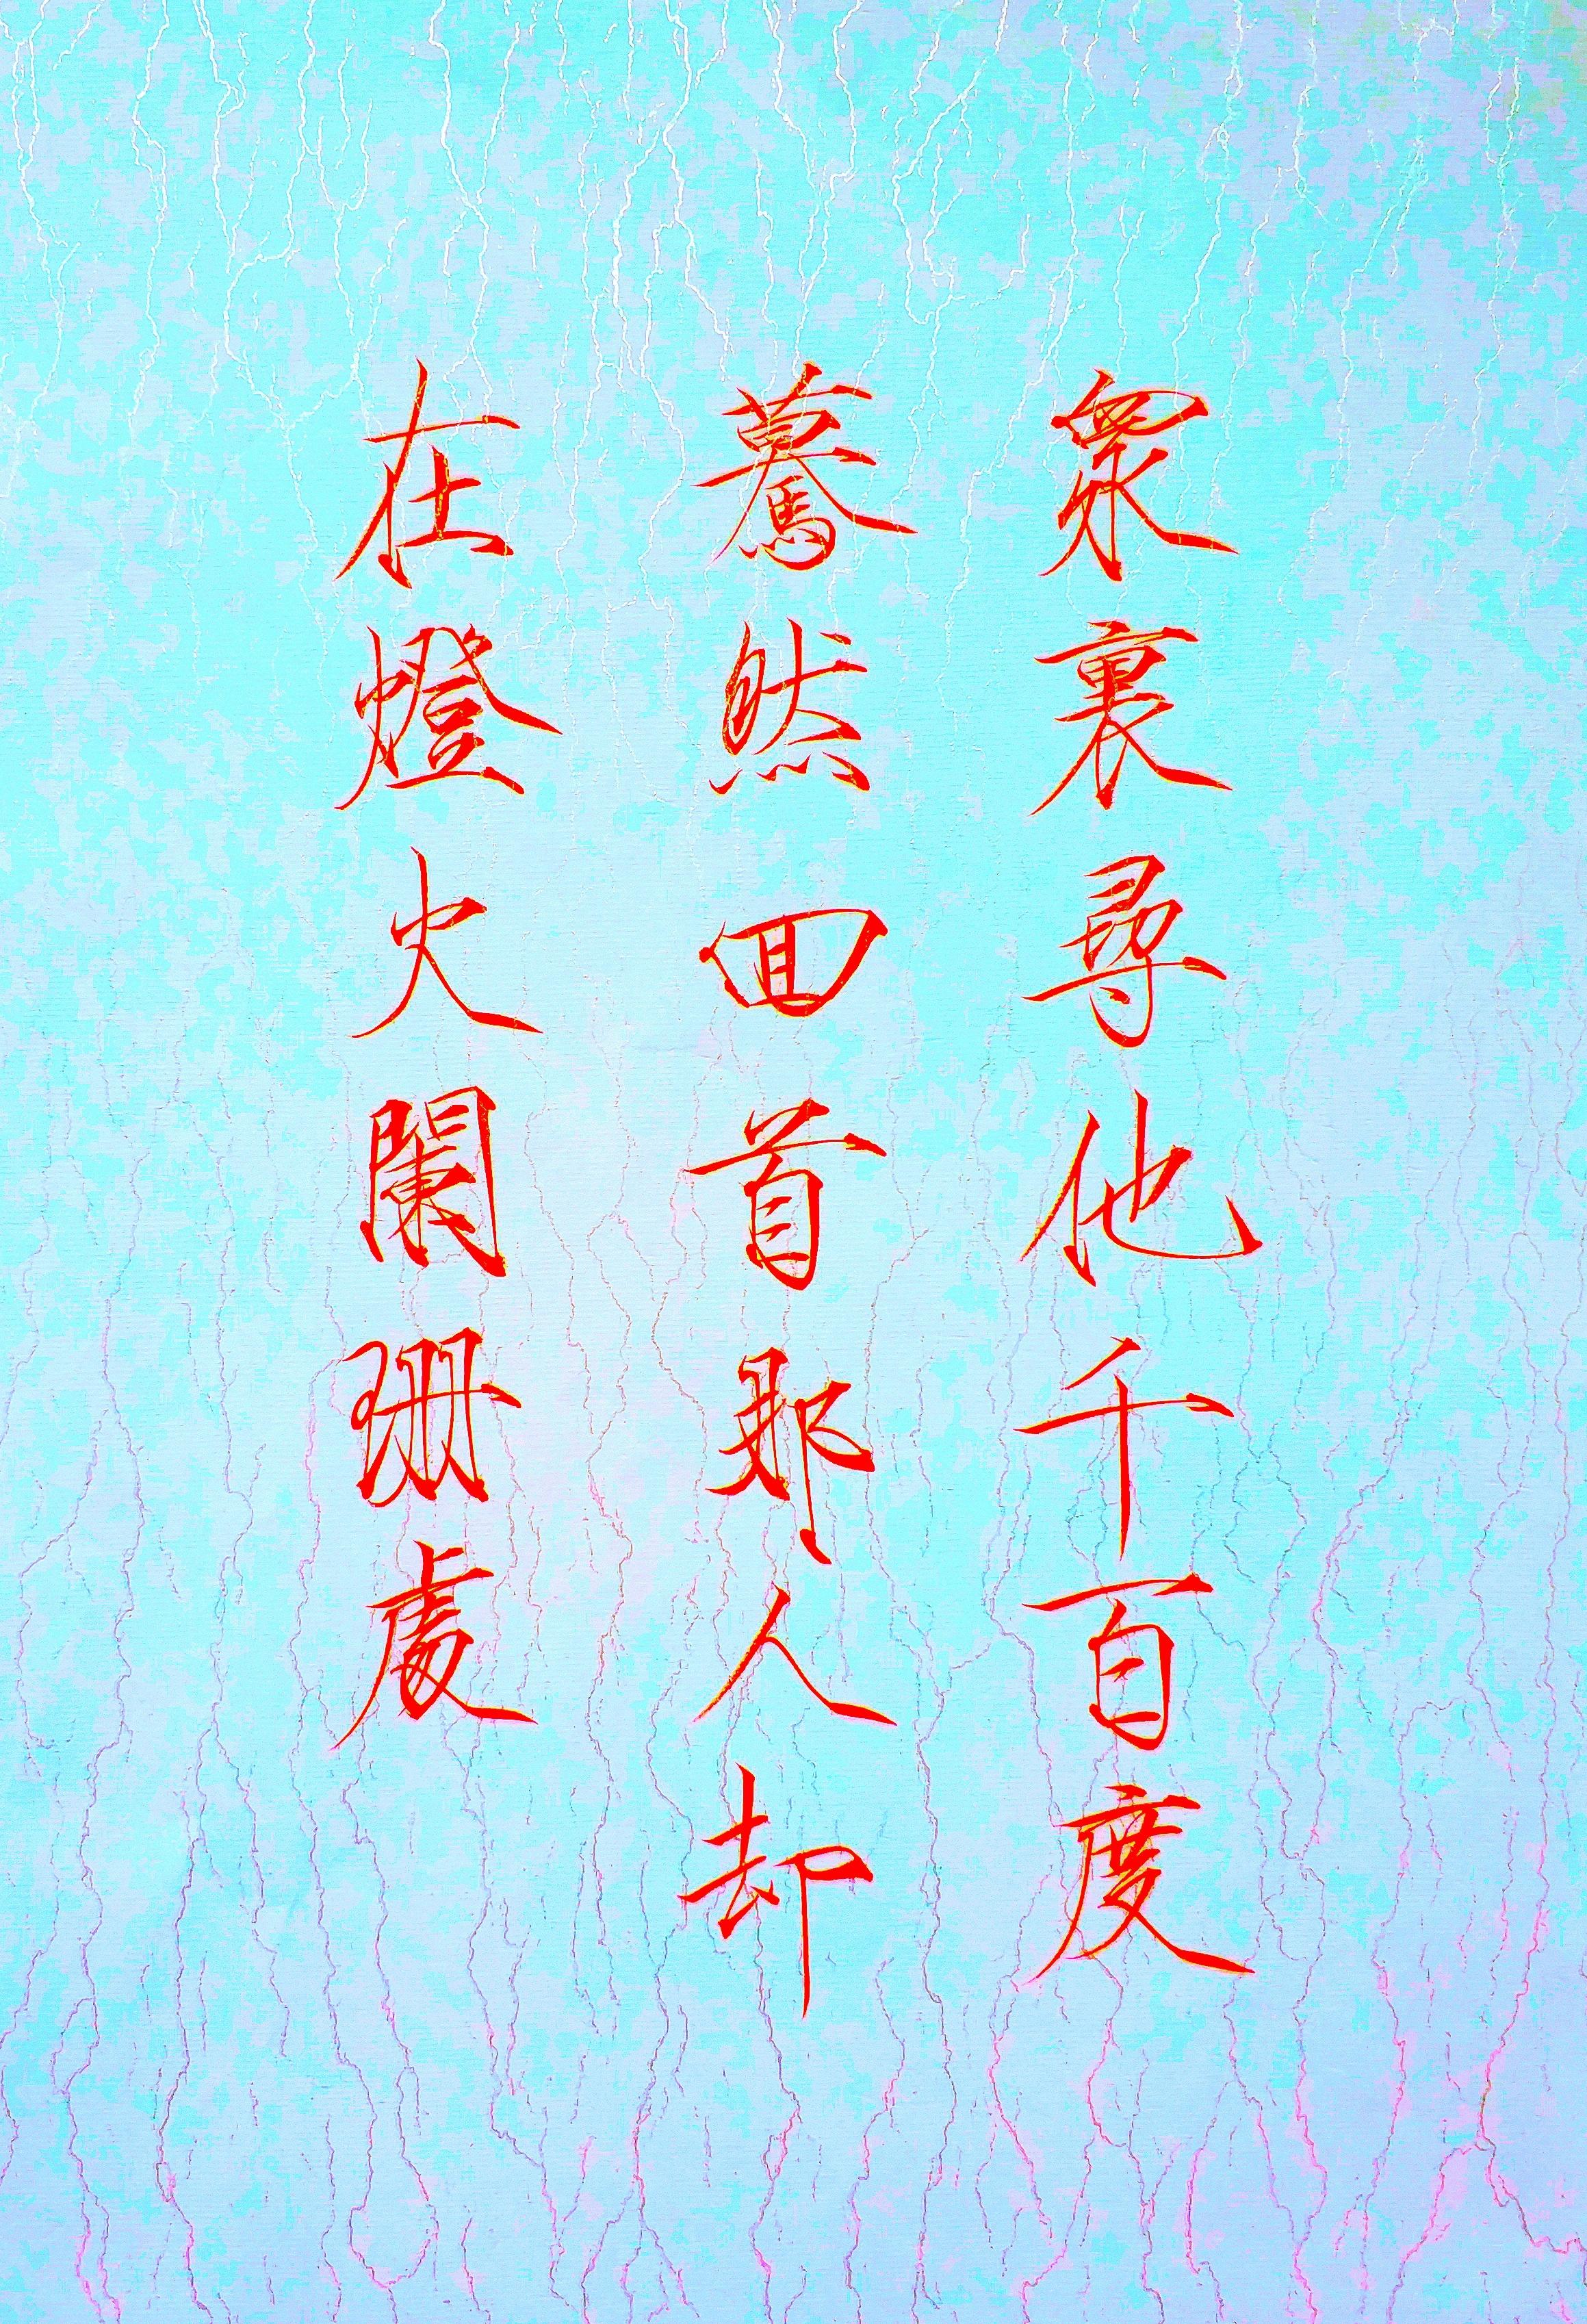 眾裏尋他千百度
驀然回首那人却
在燈火闌珊處